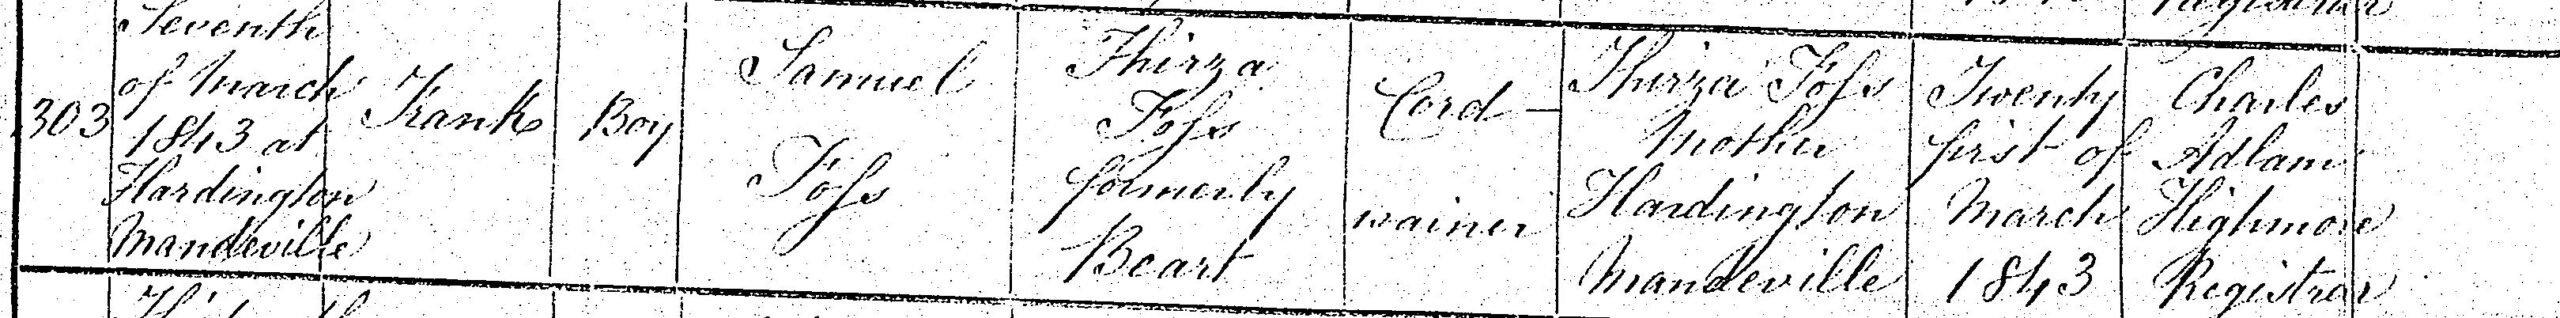 Registrar
303
Seventh
of March
1843 at
Hardington
Mandeville
Frank
Boy
Samuel
Foſs
Thirza
Foſs
formerly
Beart
Cord-
wainer
Thirza Foſs
Mother
Hardington
Mandeville
Twenty
first of
March
1843
Charles
Adlam
Highmore
Registrar